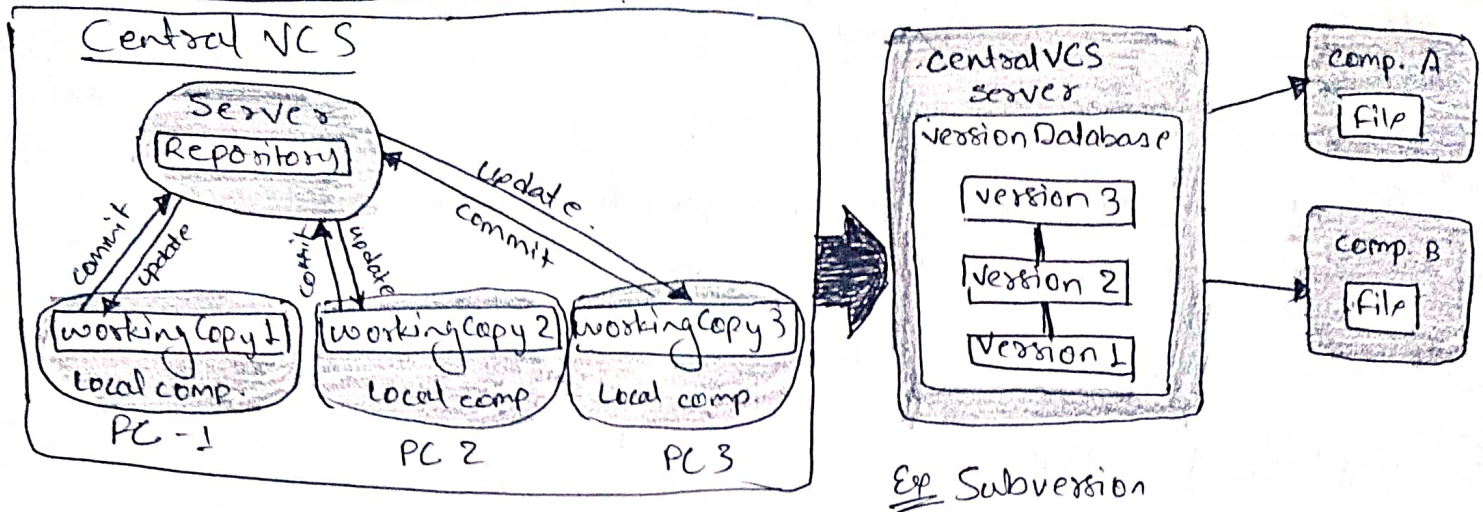 Central VCS
Server
Repository
commit
update
commit
update
update.
commit
Working Copy 1
Local comp.
PC-1
Working Copy 2
Local comp
PC 2
Working Copy 3
Local comp.
PC 3
Central VCS
server
Version Database
Version 3
Version 2
Version 1
Comp. A
File
Comp. B
File
Ex Subversion